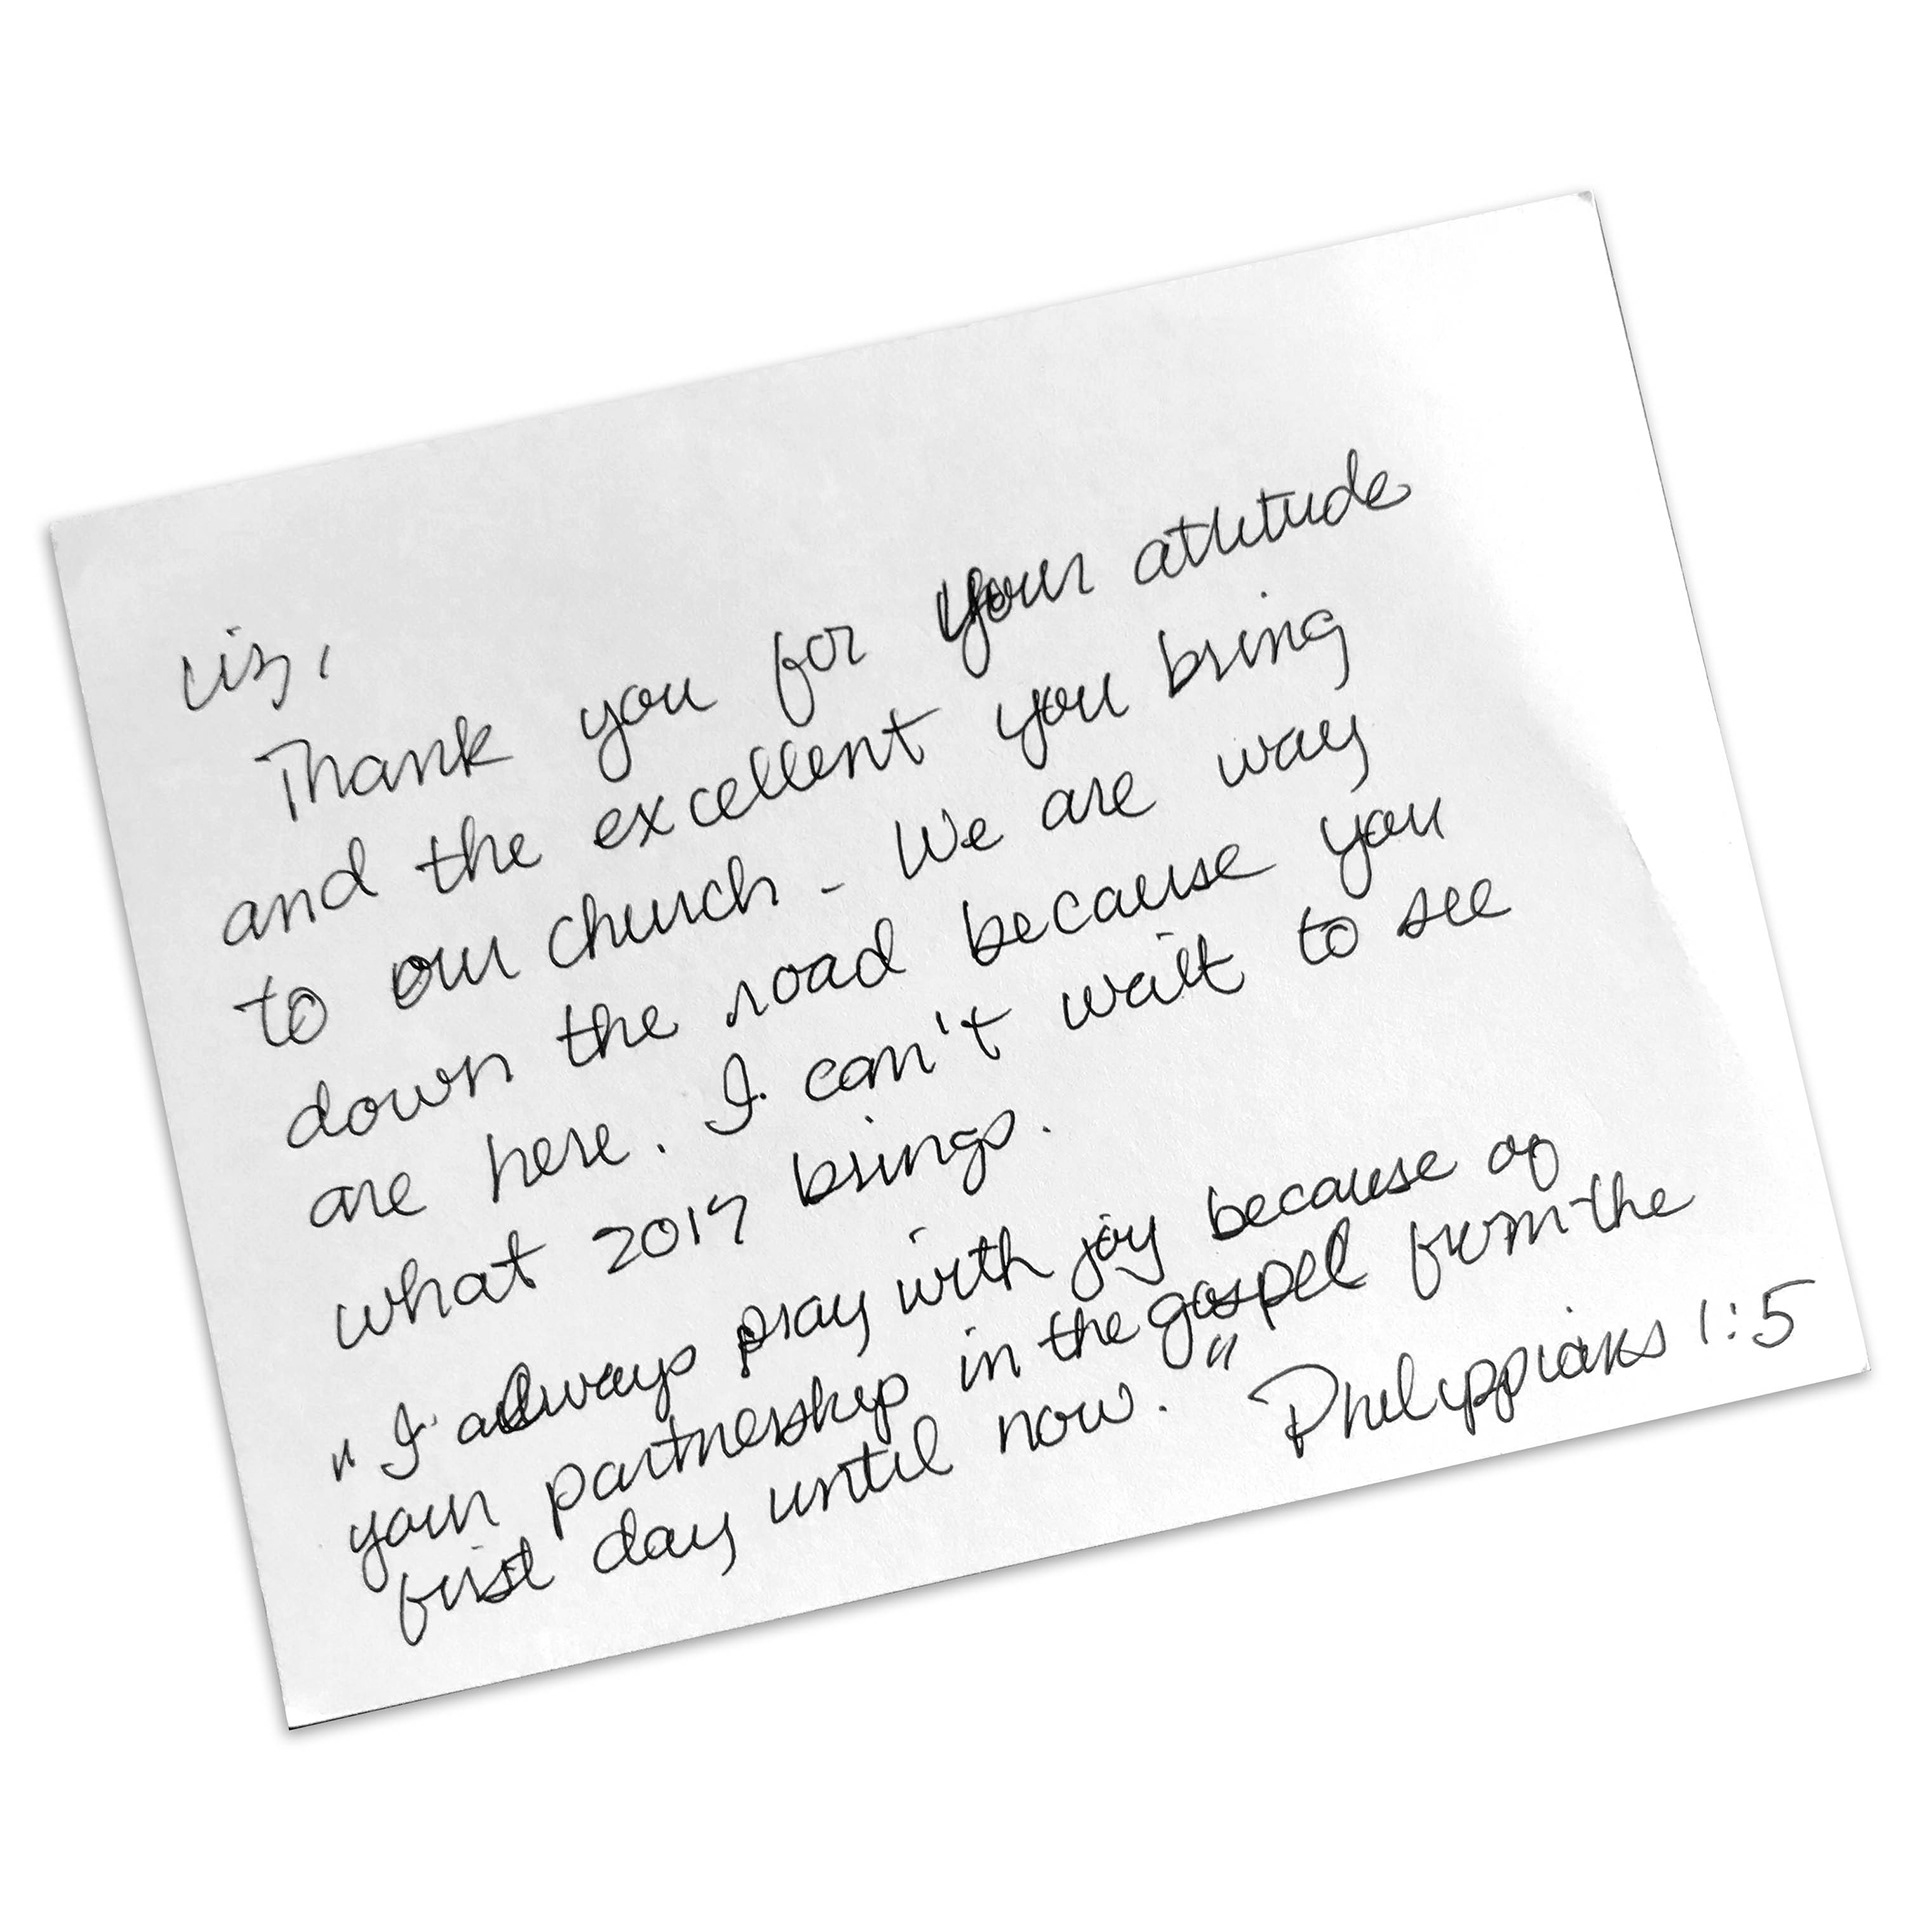 Liz,
Thank you for your attitude
and the excellent you bring
to our church - We are way
down the road because you
are here. I can't wait to see
what 2017 brings.
"I always pray with joy because of
your partnership in the gospel from the
first day until now." Philippians 1:5